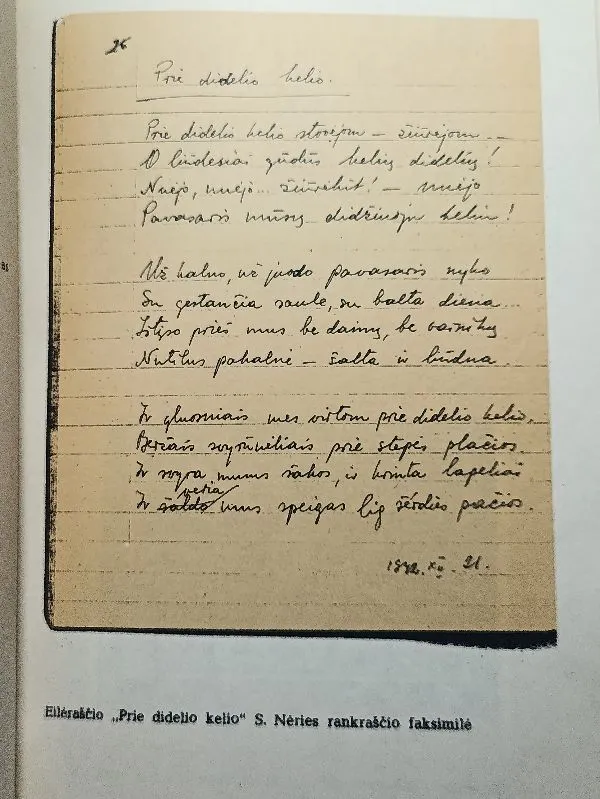 26
Prie didelio kelio.
Prie didelio kelio stovėjom – žiūrėjom...
O liūdesiai gūdūs kelių didelių!
Nuėjo, nuėjo... žiūrėkit! – nuėjo
Pavasaris mūsų didžiuoju keliu!
Už kalno, už juodo pavasaris nyko
Su gęstančia saule, su balta diena...
Ištįso prieš mus be dainų, be
Nutilus pakalnė – šalta ir liūdna.
Ir gluosniais mes virtom prie didelio kelio,
Beržais svyrūnėliais prie stepės plačios.
Ir svyra mums šakos, ir krinta lapeliai
veria
Ir šaldo mus speigas lig šerdies pačios.
1942.XII.21.
Eilėraščio „Prie didelio kelio“ S. Nėries rankraščio faksimilė